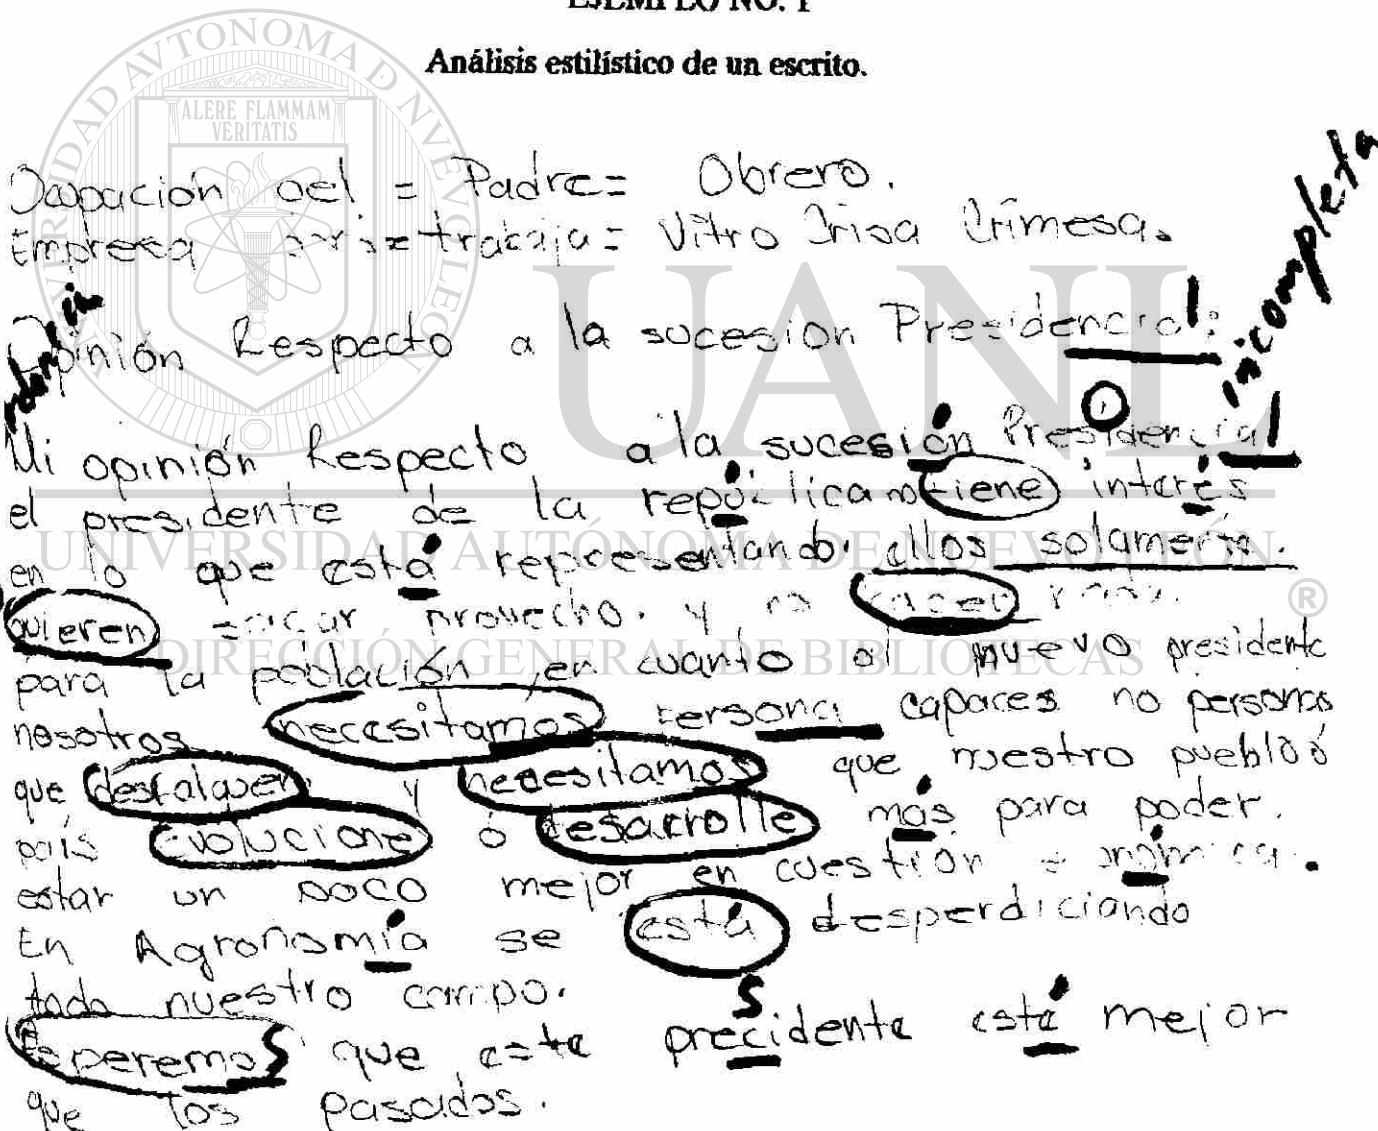 EJEMPLO NO. 1
Análisis estilístico de un escrito.
Ocupación del = Padre= Obrero.
Empresa trabaja= Vitro Crimesa.
Opinión Respecto a la sucesion Presidencial:
incompleta
Mi opinión Respecto a la sucesión Presidencial
el presidente de la república no tiene interés
en lo que está representando. ellos solamente.
quieren sacar provecho. y no hacen nada.
para la población, en cuanto al nuevo presidente
nosotros necesitamos persona capaces no personas
que desfalquen y necesitamos que nuestro pueblo ó
país evolucione ó desarrolle más para poder.
estar un poco mejor en cuestión económica.
En Agronomía se está desperdiciando
todo nuestro campo.
Esperemos que este precidente esté mejor
s
que los pasados.
UNIVERSIDAD AUTÓNOMA DE NUEVO LEÓN
ALERE FLAMMAM
VERITATIS
UANL
UNIVERSIDAD AUTÓNOMA DE NUEVO LEÓN
®
DIRECCIÓN GENERAL DE BIBLIOTECAS